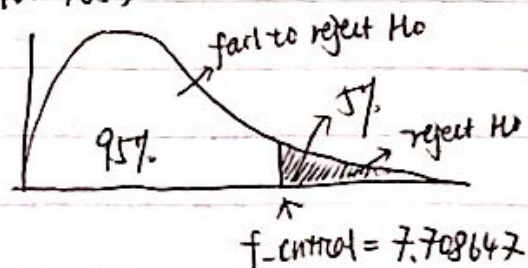 fail to reject H0
5%
95%.
reject H0
f_critical = 7.708647